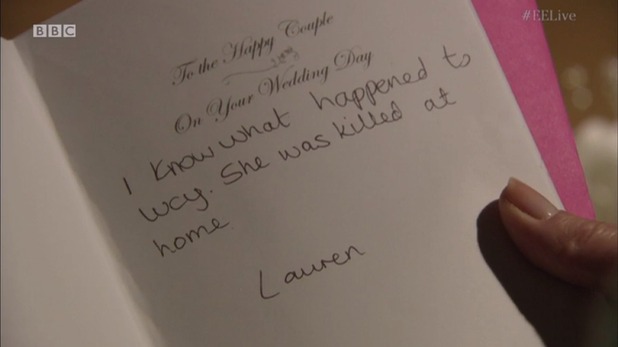 BBC
#EELive
To the Happy Couple
On Your Wedding Day
I know what happened to
Lucy. She was killed at
home
Lauren